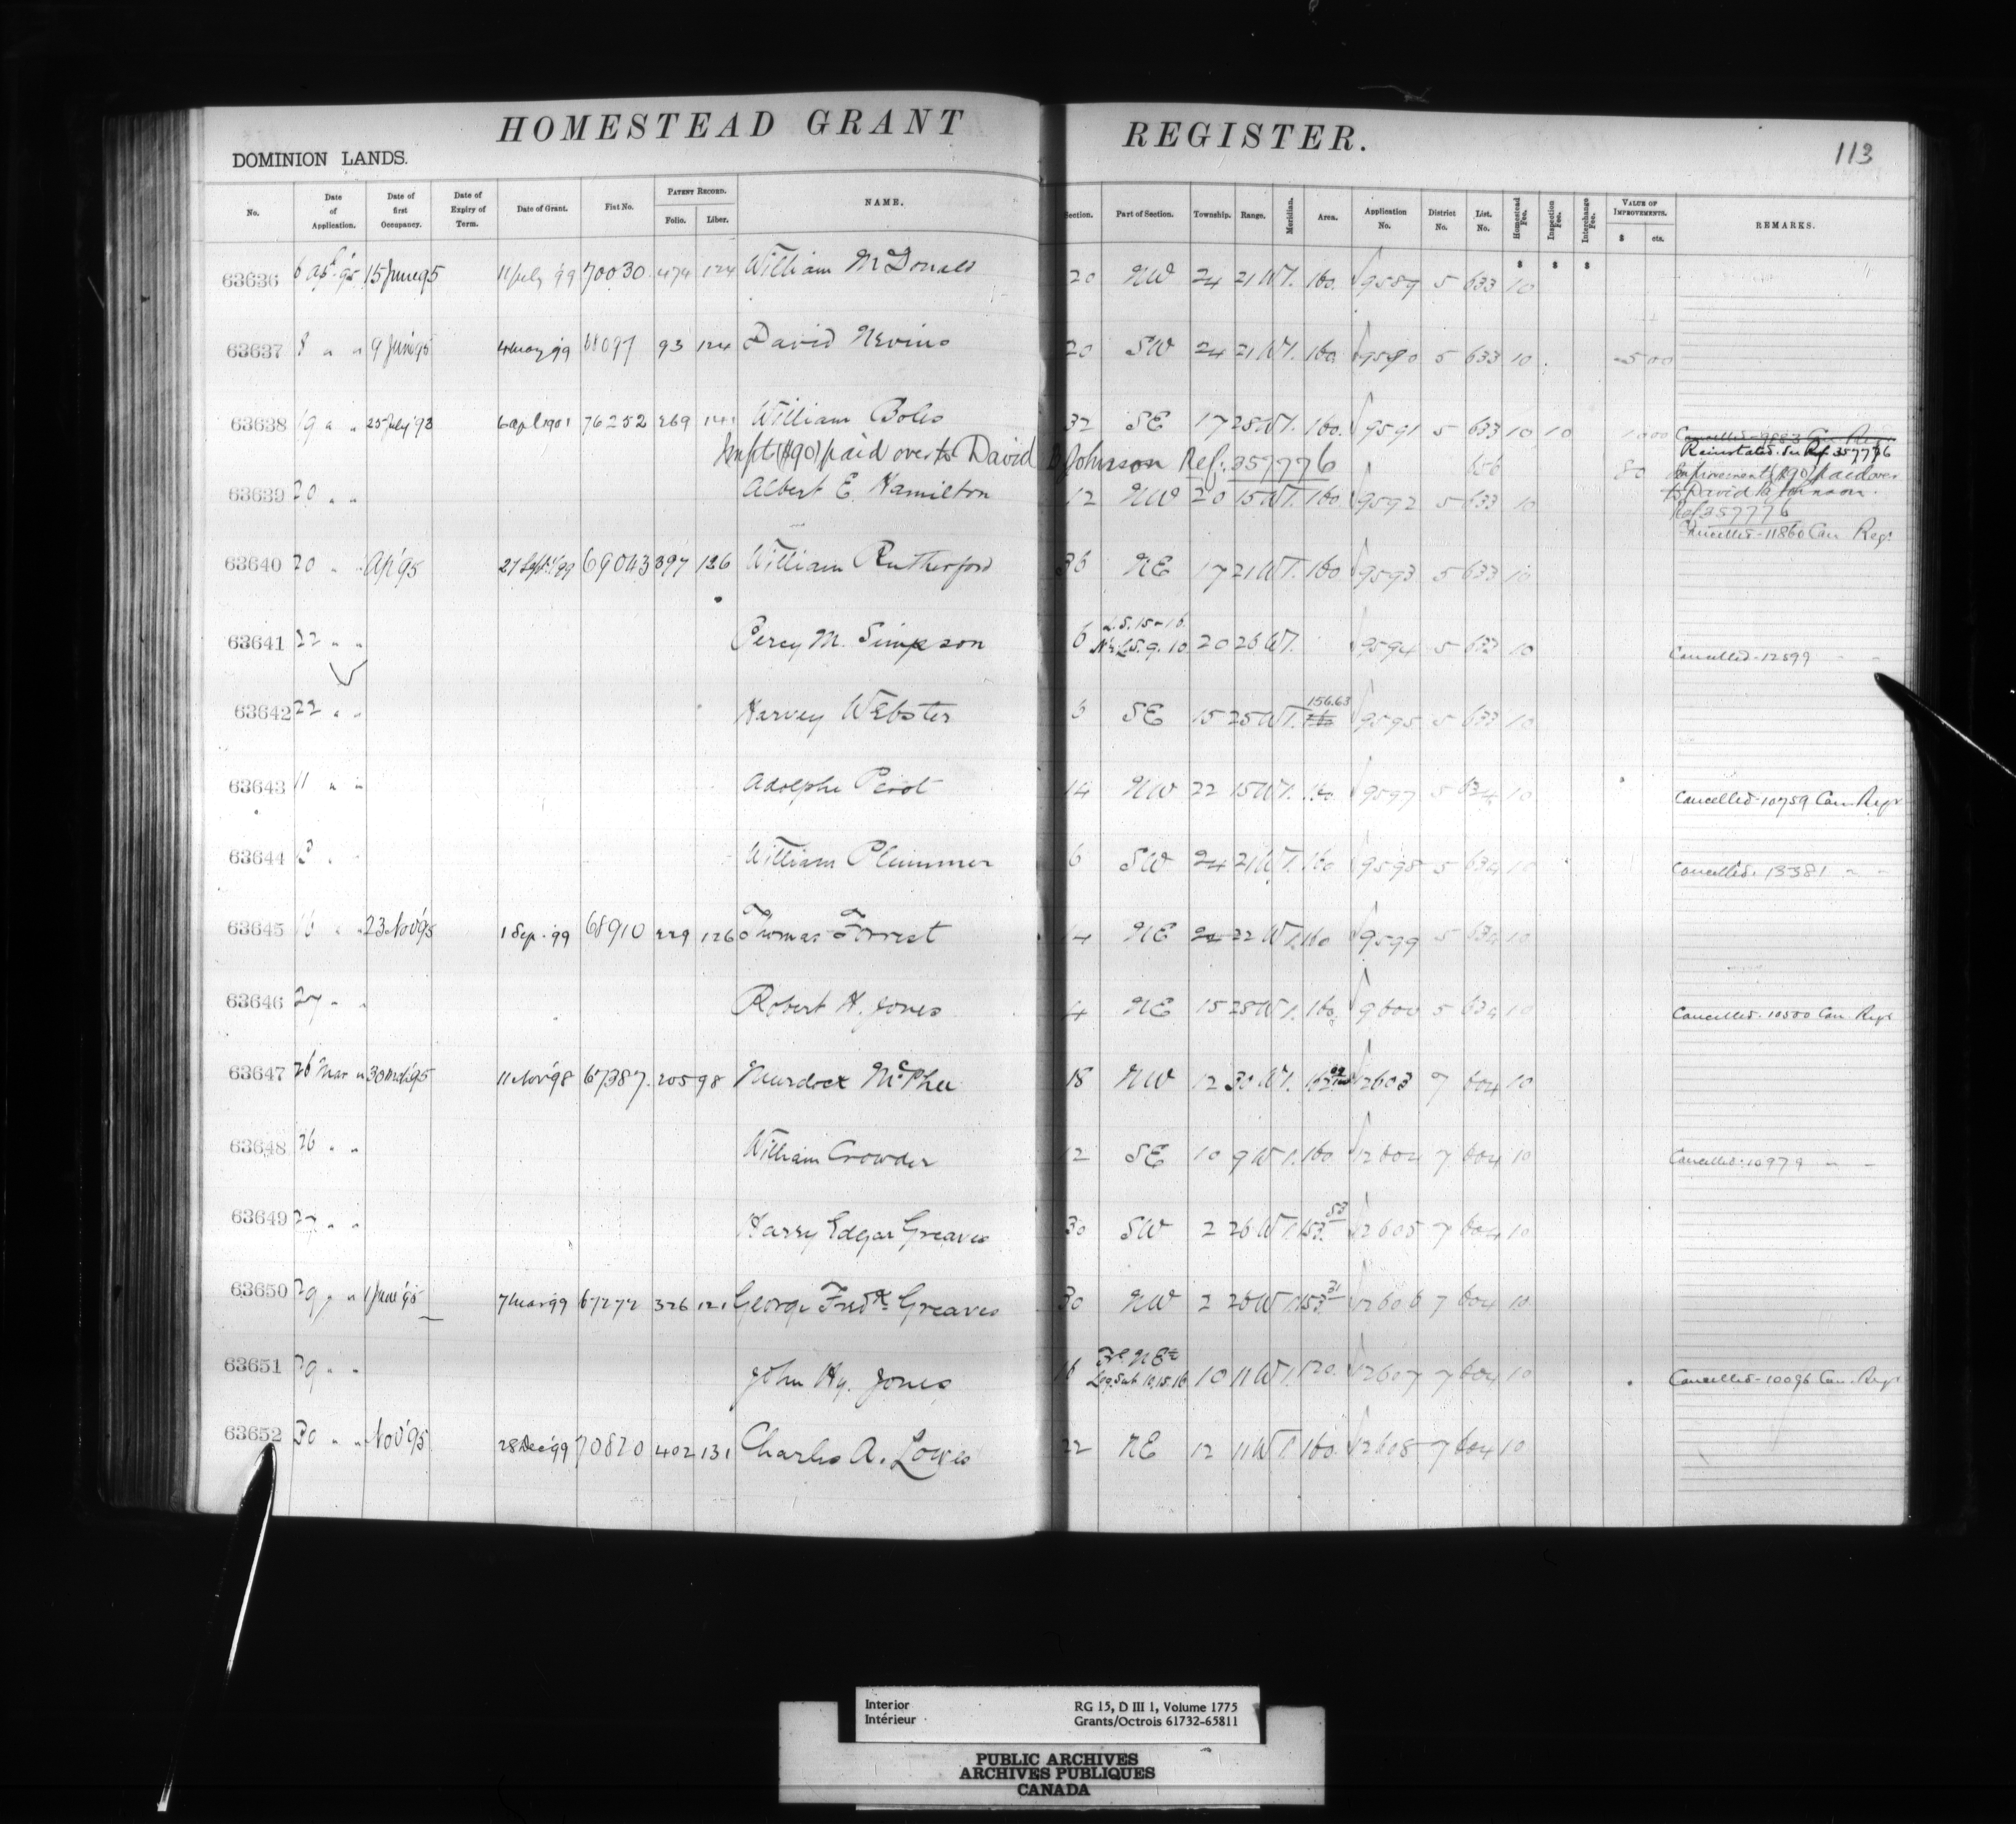 HOMESTEAD GRANT REGISTER.
113
DOMINION LANDS.
No. Date of Application. Date of first Occupancy. Date of Expiry of Term. Date of Grant. Fist No. PATENT RECORD. Folio. Liber. NAME. Section. Part of Section. Township. Range. Meridian. Area. Application No. District No. List. No. Homestead Fee. Inspection Fee. Interchange Fee. VALUE OF IMPROVEMENTS. $ cts. REMARKS.
$ $ $
63636 6 Apl. '95 15 June 95 11 July '99 70030 474 124 William McDonald 20 NW 24 21 W1. 160. 9589 5 633 10
63637 8 " " 9 Jun '95 4 May '99 68097 93 124 David Nevins 20 SW 24 21 W1. 160 9590 5 633 10 500
63638 19 " " 25 July '93 6 Apl 1901 76252 269 141 William Boles 32 SE 17 28 W1. 160. 9591 5 633 10 10 1000 Cancelled-9883 Can. Regr.
Reinstated. See Ref 357776
Impt ($90) paid over to David B Johnson Ref: 357776 656 80 Improvements ($90) paid over
63639 20 " " Albert E. Hamilton 12 NW 20 15 W1. 160 9592 5 633 10 to David B Johnson.
Ref 357776
Cancelled-11860 Can Regr
63640 20 " " Ap '95 27 Sept '99 69043 397 126 William Rutherford 36 NE 17 21 W1. 160 9593 5 633 10
63641 22 " " Percy M. Simpson 6 L.S. 15-16 N½ L.S. 9. 10 20 26 W1. 9594 5 633 10 Cancelled-12599 " "
63642 22 " " Harvey Webster SE 15 25 W1. 156.63 160 9595 5 633 10
63643 11 " " Adolphe Perot 14 NW 22 15 W1. 160 9597 5 634 10 Cancelled-10759 Can Regr
63644 13 " " William Plummer 6 SW 24 21 W1. 160 9598 5 634 10 Cancelled. 13381 " "
63645 16 " " 23 Nov '95 1 Sep. '99 68910 229 126 Thomas Forrest 14 NE 24 22 W1. 160 9599 5 634 10
63646 27 " " Robert H. Jones 4 NE 15 28 W1. 160. 9600 5 634 10 Cancelled. 10500 Can Regr
63647 26 Mar " 30 Mch '95 11 Nov '98 67387. 205 98 Murdock McPhee 18 NW 12 30 W1. 12603 7 604 10
63648 26 " " William Crowder 12 SE 10 9 W1. 160 12604 7 604 10 Cancelled. 10979 " "
63649 27 " " Harry Edgar Greaves 30 SW 2 26 W1. 153.53 12605 7 604 10
63650 29 " " 1 June '95 7 Mar 99 67272 326 121 George Fredk. Greaves 30 NW 2 26 W1. 153.31 12606 7 604 10
63651 29 " " John Hy. Jones 16 Frl. NE¼ Leg. Sub 10, 15, 16 10 11 W1. 120. 12607 7 604 10 Cancelled-10096 Can. Regr
63652 30 " " Nov '95 28 Dec '99 70820 402 131 Charles A. Lowes 22 NE 12 11 W1. 160. 12608 7 604 10
Interior RG 15, D III 1, Volume 1775
Intérieur Grants/Octrois 61732-65811
PUBLIC ARCHIVES
ARCHIVES PUBLIQUES
CANADA